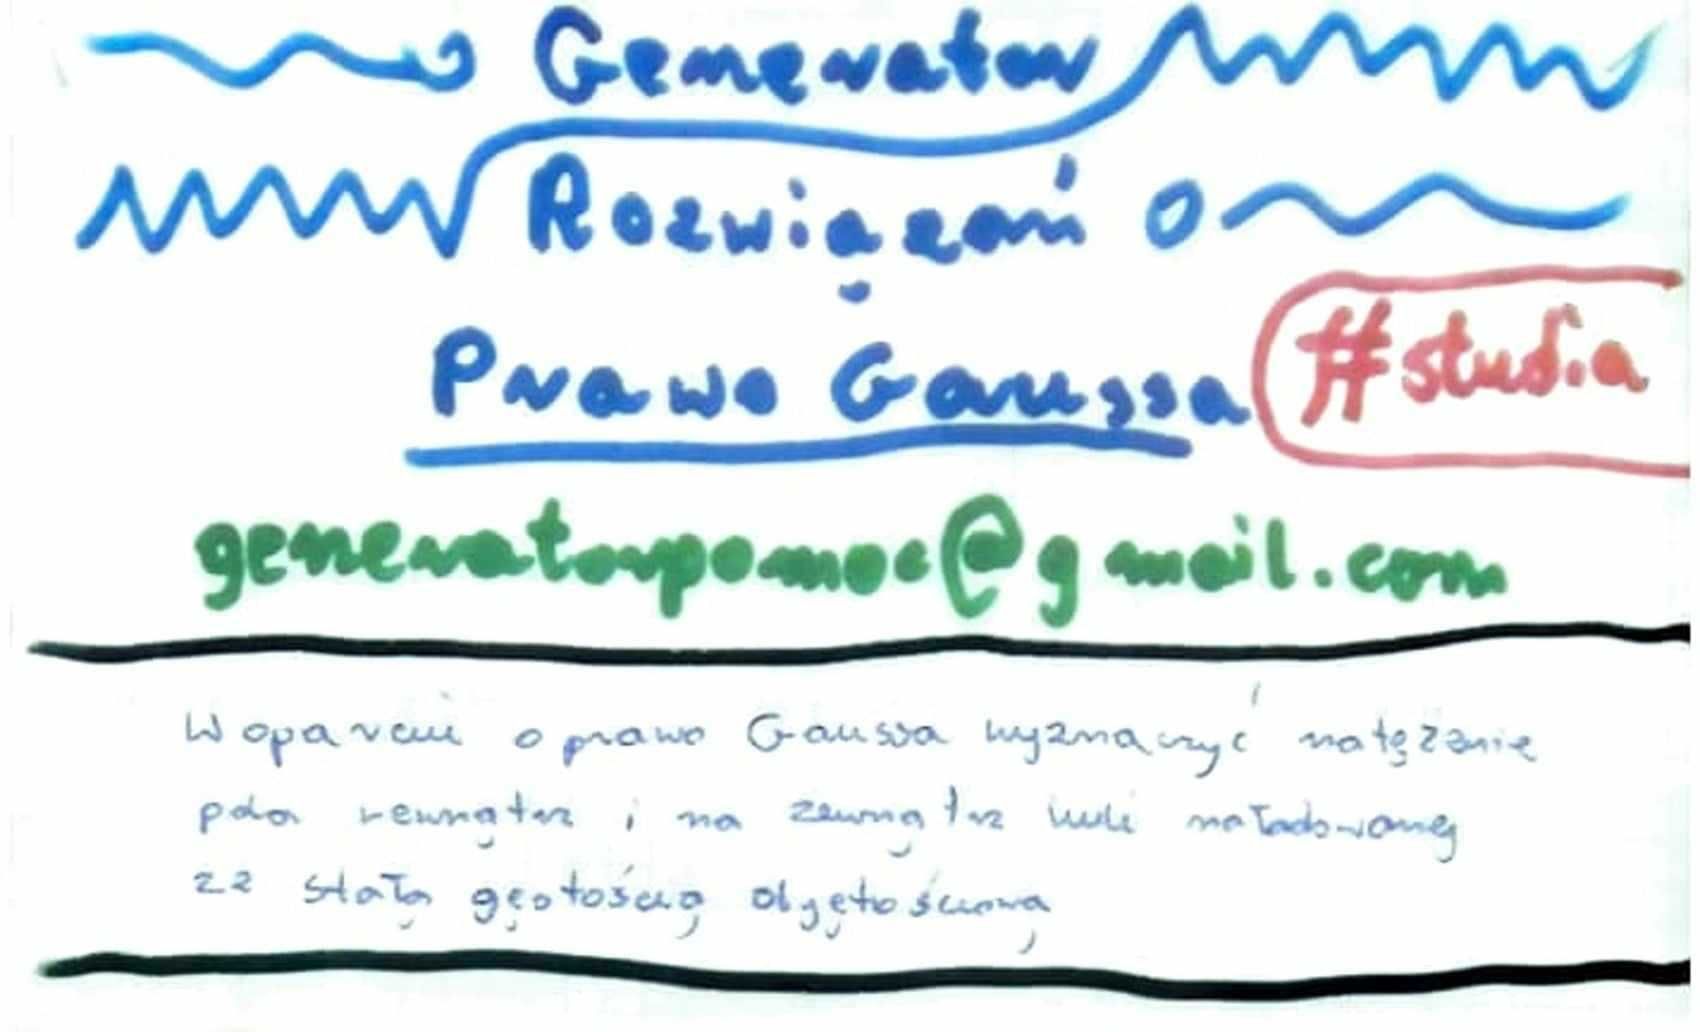 Generator
Rozwiązań
Prawo Gaussa
#studia
generatorpomoc@gmail.com
W oparciu o prawo Gaussa wyznaczyć natężenie
pola wewnątrz i na zewnątrz kuli naładowanej
ze stałą gęstością objętościową